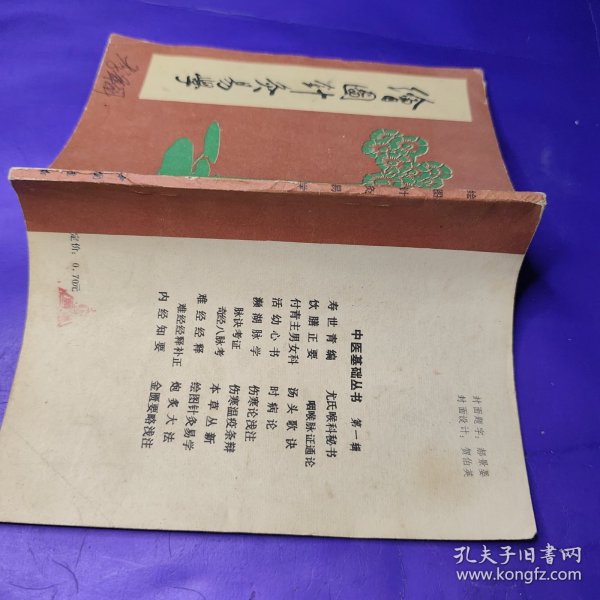 繪圖針灸易學
中医基础丛书 第一辑
寿世青编 尤氏喉科秘书
饮膳正要 咽喉脉证通论
付青主男女科 汤头歌诀
活幼心书 时病论
濒湖脉学 伤寒论浅注
脉诀考证 伤寒温疫条辩
奇经八脉考 本草丛新
难经经释 绘图针灸易学
难经经释补正 炮炙大法
内经知要 金匮要略浅注
封面题字：郝景晏
封面设计：贺伯英
定价：0.70元
孔夫子旧书网
www.kongfz.com